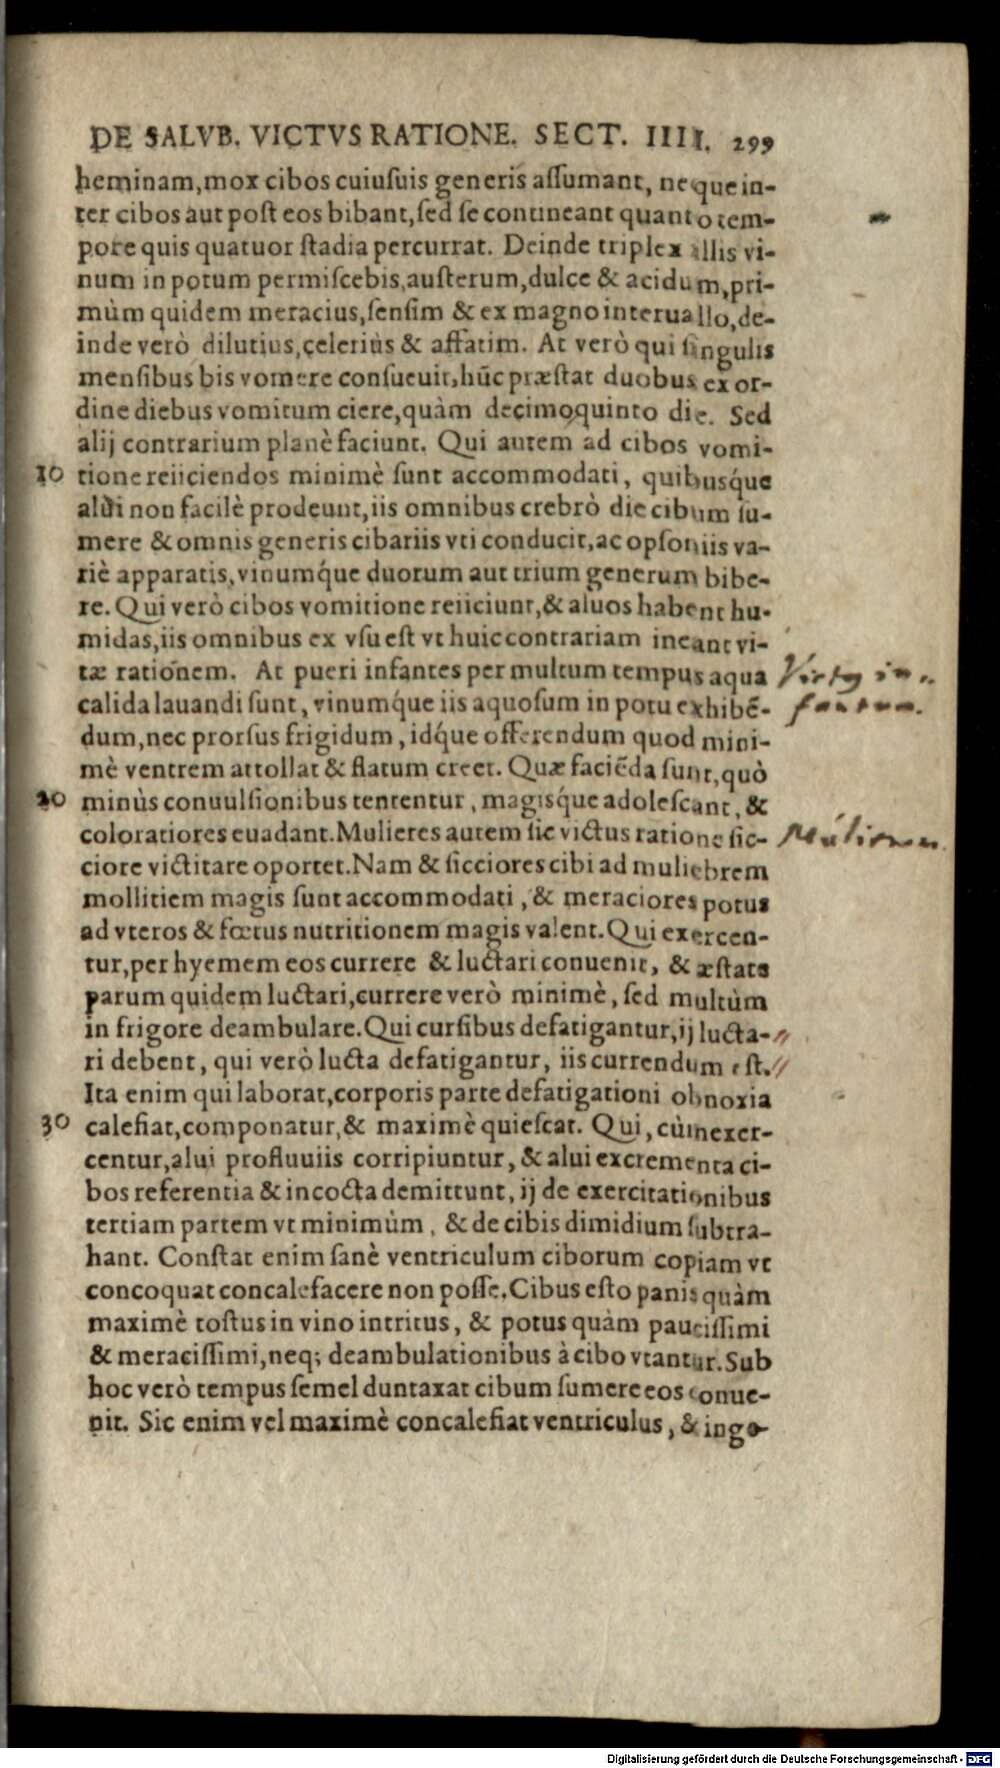 DE SALVB. VICTVS RATIONE. SECT. IIII. 299
heminam, mox cibos cuiusuis generis assumant, neque in-
ter cibos aut post eos bibant, sed se contineant quanto tem-
pore quis quatuor stadia percurrat. Deinde triplex illis vi-
num in potum permiscebis, austerum, dulce & acidum, pri-
mùm quidem meracius, sensim & ex magno interuallo, de-
inde verò dilutius, celeriùs & affatim. At verò qui singulis
mensibus bis vomere consueuit, hūc præstat duobus ex or-
dine diebus vomitum ciere, quàm decimoquinto die. Sed
alij contrarium planè faciunt. Qui autem ad cibos vomi-
10 tione reiiciendos minimè sunt accommodati, quibusq́ue
alui non facilè prodeunt, iis omnibus crebrò die cibum su-
mere & omnis generis cibariis vti conducit, ac opsoniis va-
riè apparatis, vinumq́ue duorum aut trium generum bibe-
re. Qui verò cibos vomitione reiiciunt, & aluos habent hu-
midas, iis omnibus ex vsu est vt huic contrariam ineant vi-
tæ rationem. At pueri infantes per multum tempus aqua
calida lauandi sunt, vinumq́ue iis aquosum in potu exhibē-
dum, nec prorsus frigidum, idq́ue offerendum quod mini-
mè ventrem attollat & flatum creet. Quæ faciēda sunt, quò
20 minùs conuulsionibus tententur, magisq́ue adolescant, &
coloratiores euadant. Mulieres autem sic victus ratione sic-
ciore victitare oportet. Nam & sicciores cibi ad muliebrem
mollitiem magis sunt accommodati, & meraciores potus
ad vteros & fœtus nutritionem magis valent. Qui exercen-
tur, per hyemem eos currere & luctari conuenit, & æstate
parum quidem luctari, currere verò minimè, sed multùm
in frigore deambulare. Qui cursibus defatigantur, ij lucta-
ri debent, qui verò lucta defatigantur, iis currendum est.
Ita enim qui laborat, corporis parte defatigationi obnoxia
30 calefiat, componatur, & maximè quiescat. Qui, cùm exer-
centur, alui profluuiis corripiuntur, & alui excrementa ci-
bos referentia & incocta demittunt, ij de exercitationibus
tertiam partem vt minimùm, & de cibis dimidium subtra-
hant. Constat enim sanè ventriculum ciborum copiam vt
concoquat concalefacere non posse. Cibus esto panis quàm
maximè tostus in vino intritus, & potus quàm paucissimi
& meracissimi, neq; deambulationibus à cibo vtantur. Sub
hoc verò tempus semel duntaxat cibum sumere eos conue-
nit. Sic enim vel maximè concalefiat ventriculus, & inge-
Victus in-
fantum.
Digitalisierung gefördert durch die Deutsche Forschungsgemeinschaft - DFG